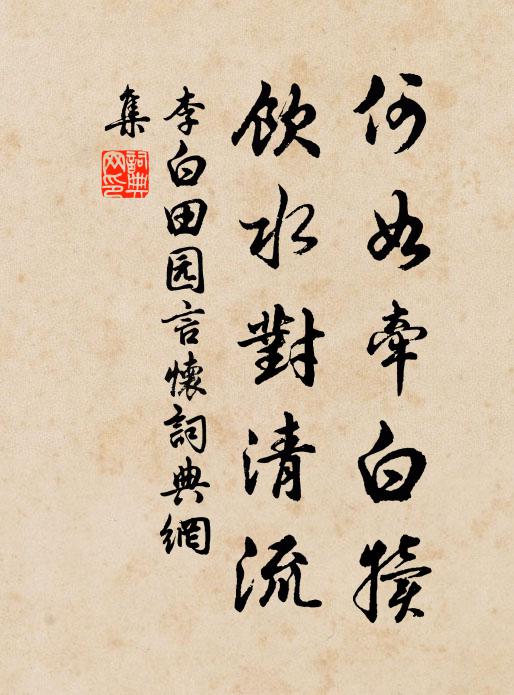 何如牽白犢
飲水對清流
李白田园言懷詞典網
集
詞典
网印